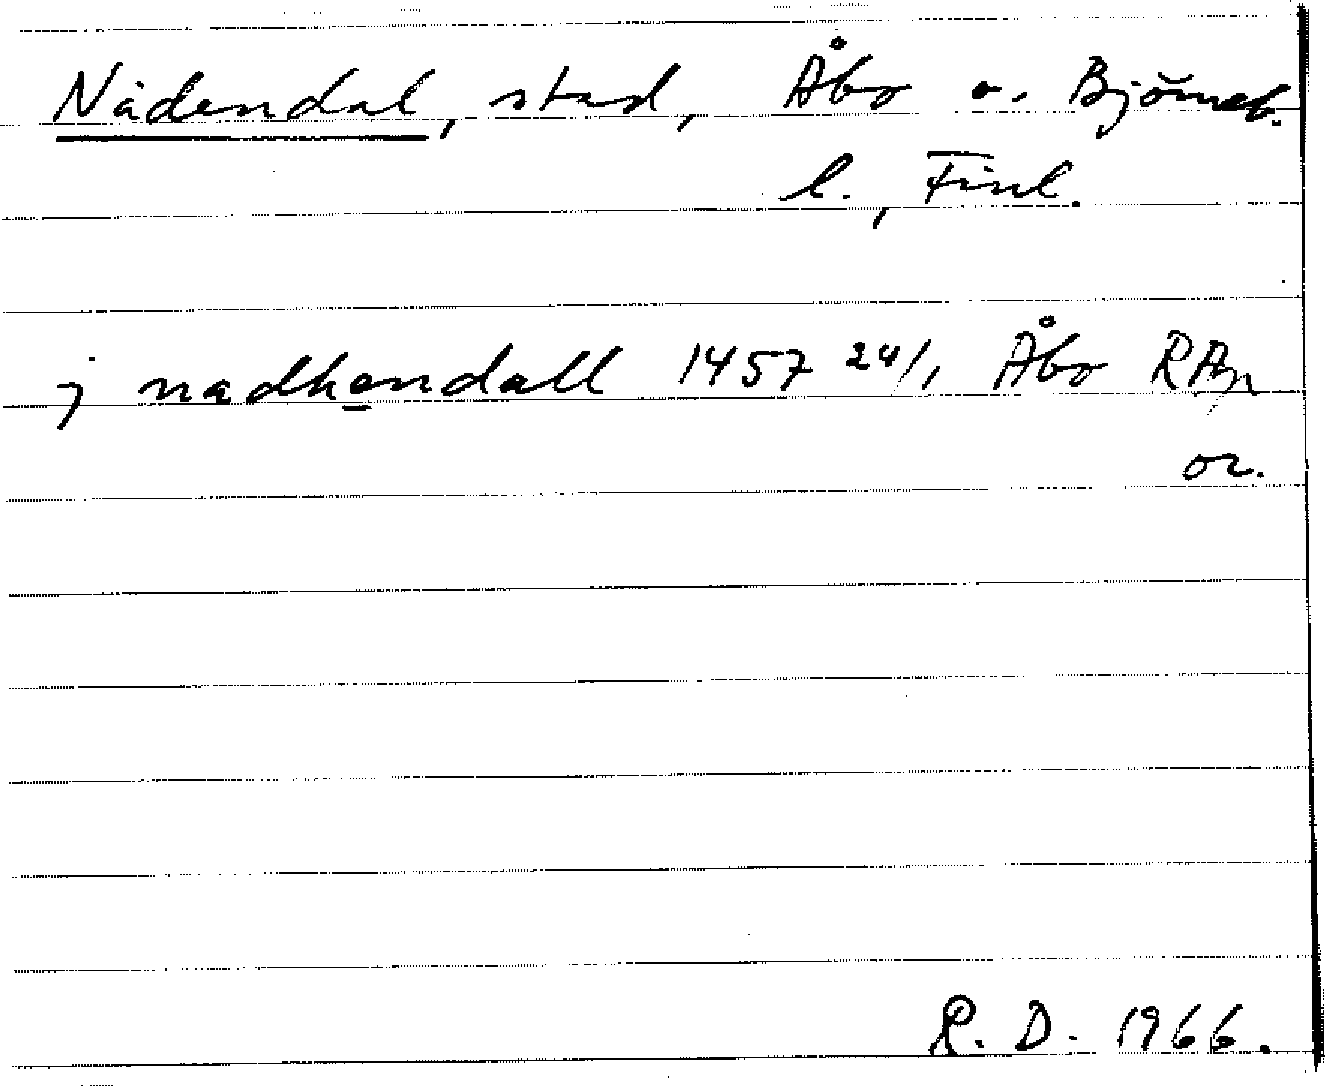 Nådendal, stad, Åbo o. Björneb.
l., Finl.
j nadhendall 1457 24/1 Åbo RAp
or.
R. D. 1966.